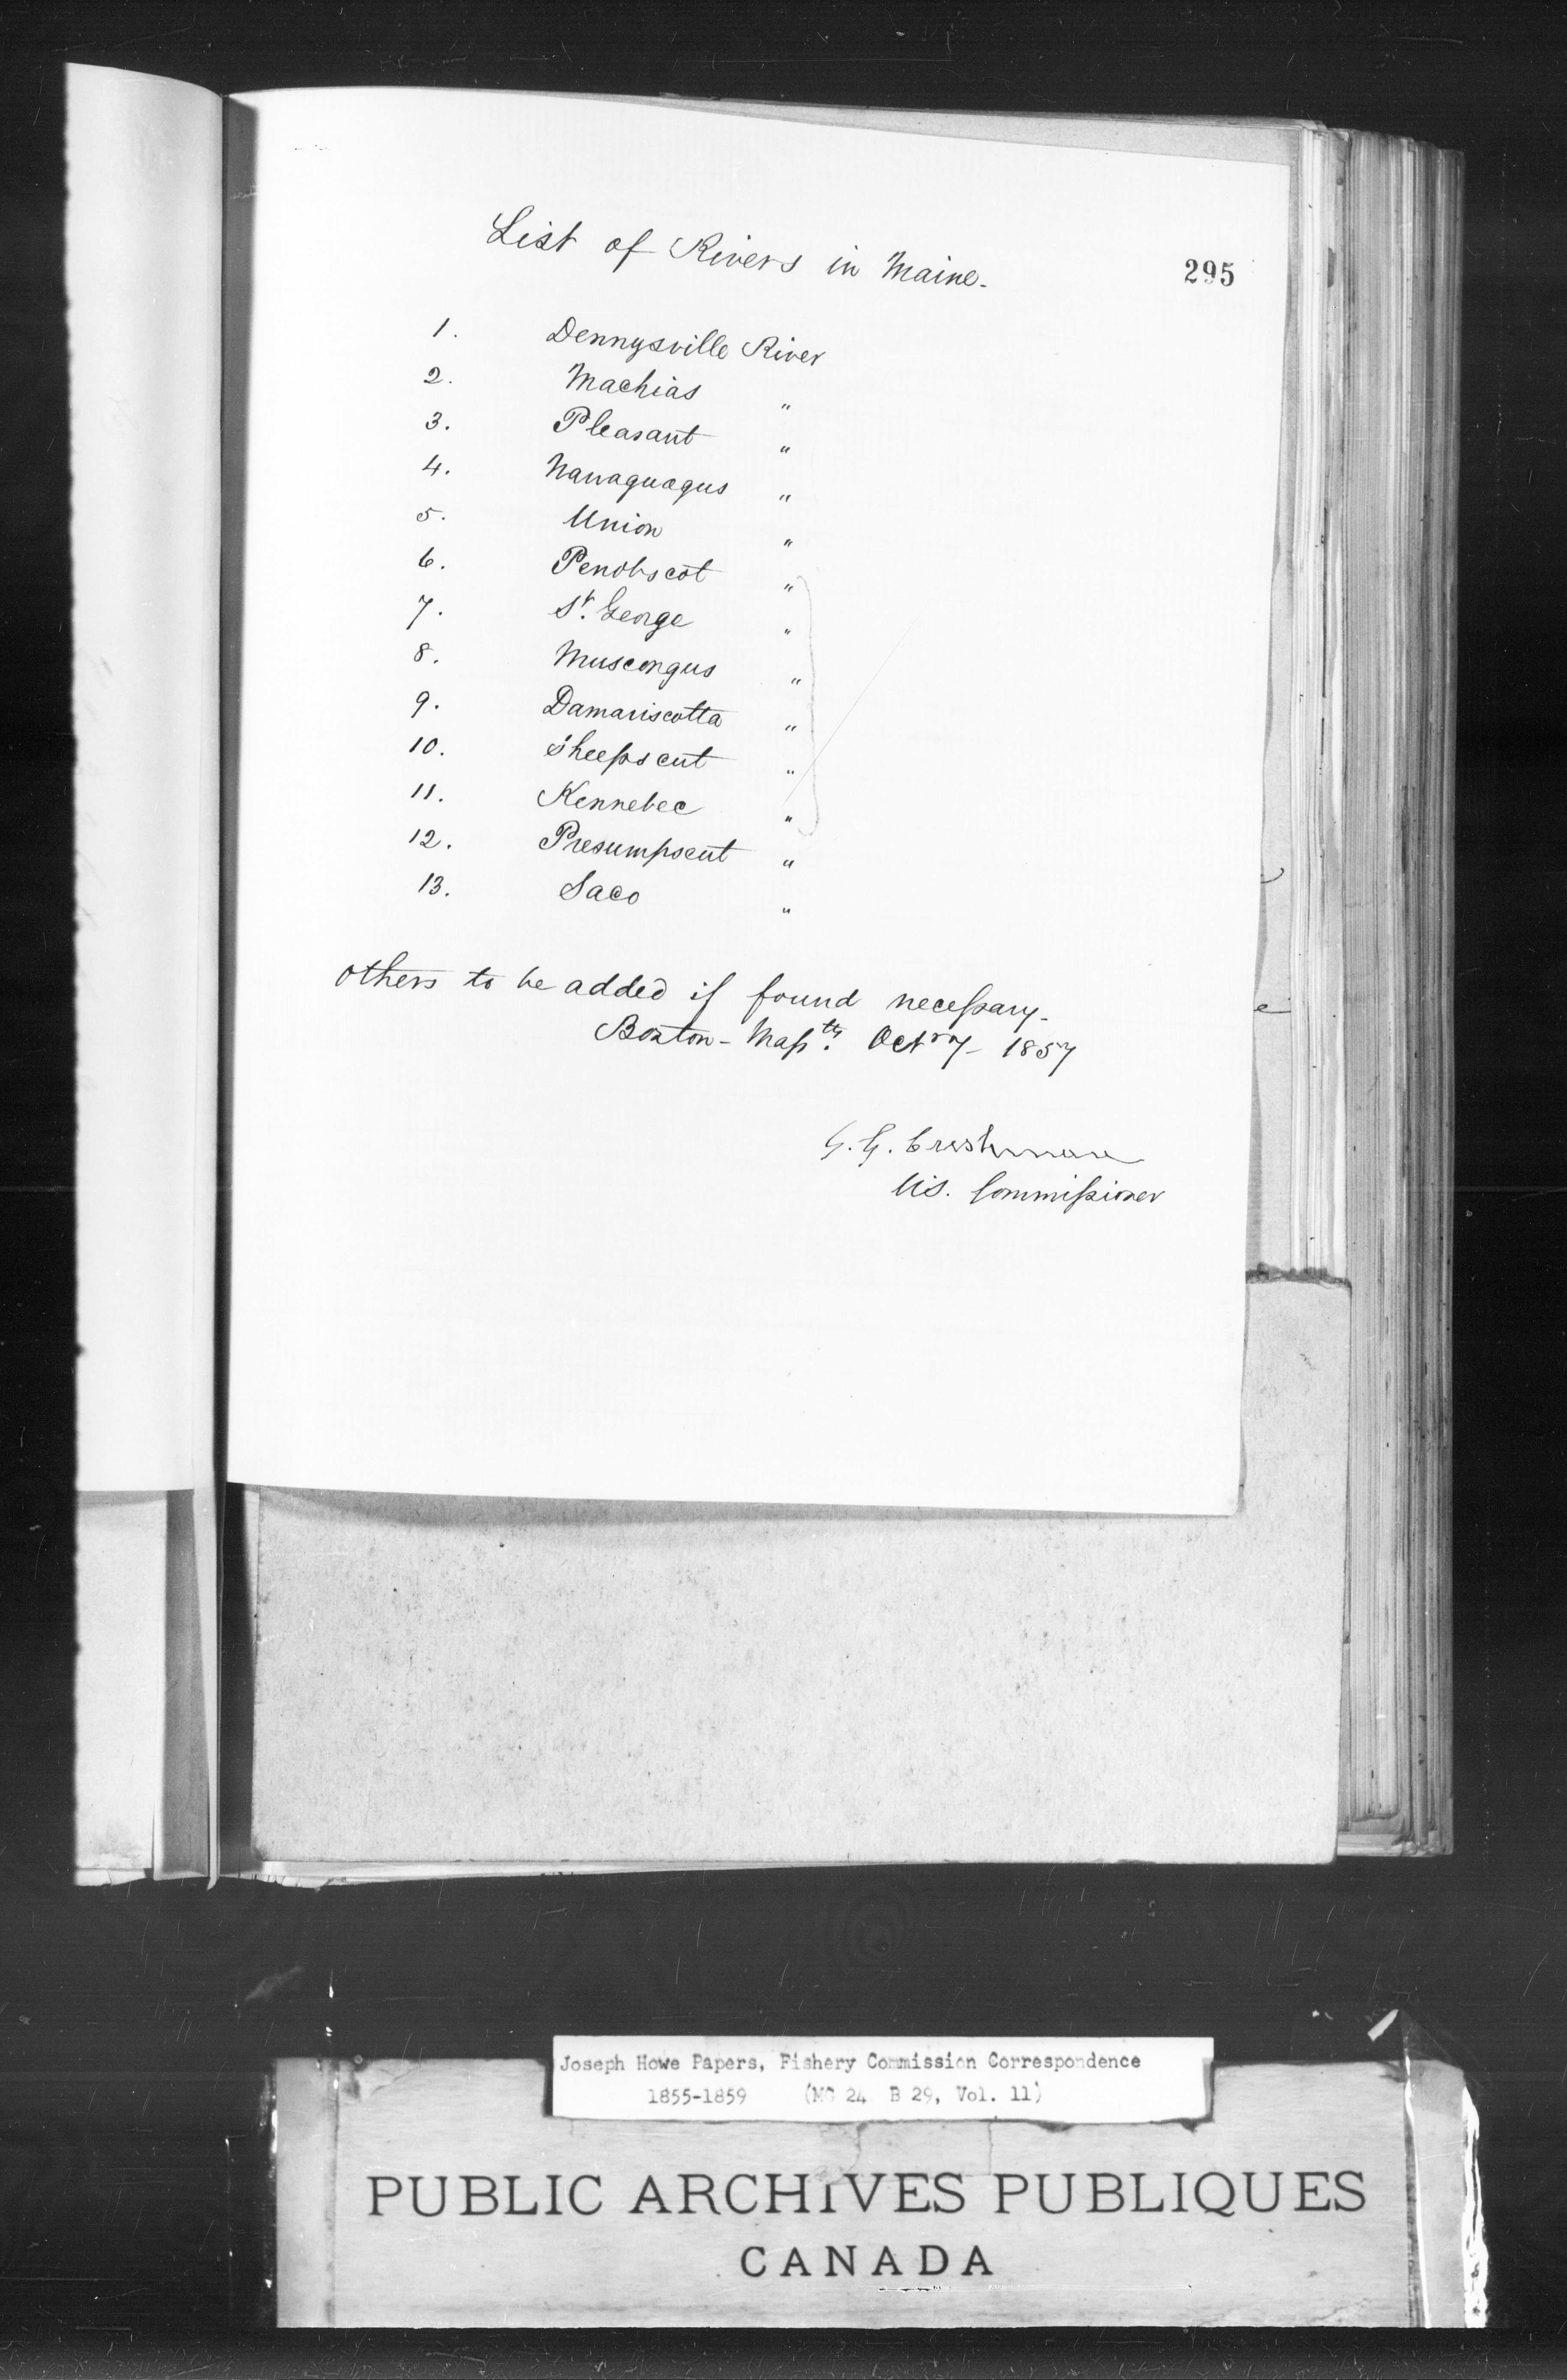 List of Rivers in Maine.
295
1. Dennysville River
2. Machias "
3. Pleasant "
4. Narraguagus "
5. Union "
6. Penobscot "
7. St. George "
8. Muscongus "
9. Damariscotta "
10. Sheepscut "
11. Kennebec "
12. Presumpscut "
13. Saco "
others to be added if found necessary.
Boston - Massts. Oct 1857
G. G. Cushman
US. Commissioner
Joseph Howe Papers, Fishery Commission Correspondence
1855-1859 (MG 24 B 29, Vol. 11)
PUBLIC ARCHIVES PUBLIQUES
CANADA